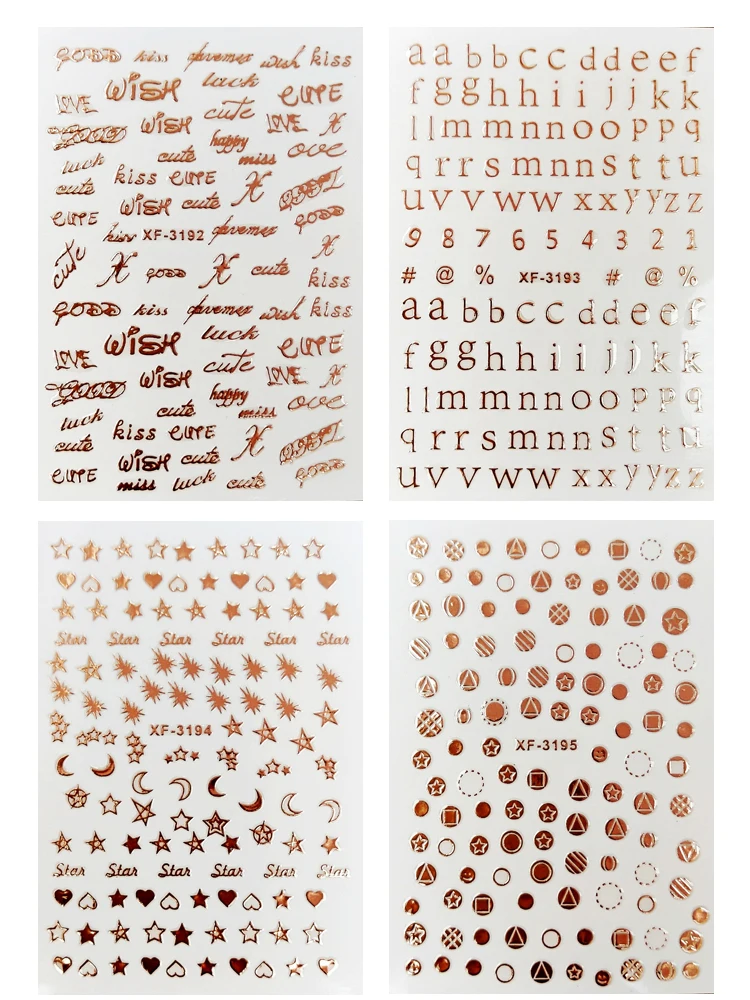 GOOD kiss
wish kiss
WISH luck CUTE
LOVE cute
GOOD WISH LOVE X
happy
luck cute miss ove
cute kiss CUTE X
WISH cute
CUTE GOOD
kiss XF-3192
cute X GOOD X cute X
kiss
GOOD kiss wish kiss
WISH luck CUTE
LOVE cute
GOOD WISH LOVE X
happy
luck cute miss ove
cute kiss CUTE X
CUTE WISH cute GOOD
miss luck cute
a a b b c c d d e e f
f g g h h i i j j k k
l l m m n n o o p p q
q r r s m n n s t t u
u v v w w x x y y z z
9 8 7 6 5 4 3 2 1
# @ % XF-3193 # @ %
a a b b c c d d e e f
f g g h h i i j j k k
l l m m n n o o p p q
q r r s m n n s t t u
u v v w w x x y y z z
Star Star Star Star Star Star
XF-3194
Star Star Star Star Star Star
XF-3195